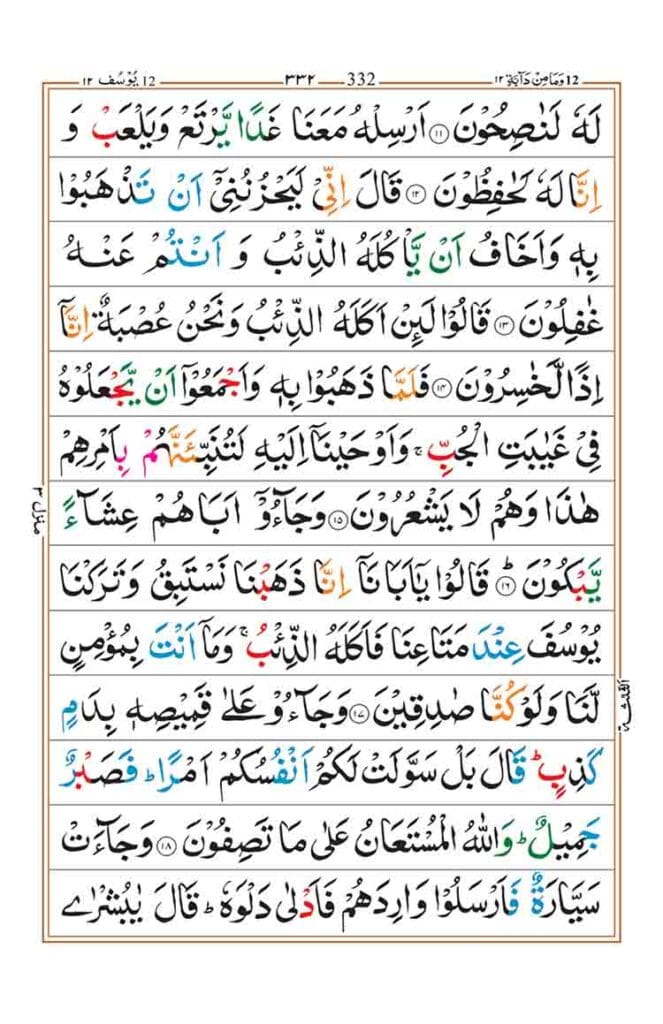 12 وَمَا مِنْ دَآبَّةٍ ١٢ 332 ٣٣٢ 12 يُوْسُف ١٢
لَهٗ لَنٰصِحُوْنَ ۝١١ اَرْسِلْهُ مَعَنَا غَدًا يَّرْتَعْ وَيَلْعَبْ وَ
اِنَّا لَهٗ لَحٰفِظُوْنَ ۝١٢ قَالَ اِنِّىْ لَيَحْزُنُنِىْۤ اَنْ تَذْهَبُوْا
بِهٖ وَاَخَافُ اَنْ يَّاْكُلَهُ الذِّئْبُ وَ اَنْتُمْ عَنْهُ
غٰفِلُوْنَ ۝١٣ قَالُوْا لَئِنْ اَكَلَهُ الذِّئْبُ وَنَحْنُ عُصْبَةٌ اِنَّاۤ
اِذًا لَّخٰسِرُوْنَ ۝١٤ فَلَمَّا ذَهَبُوْا بِهٖ وَاَجْمَعُوْۤا اَنْ يَّجْعَلُوْهُ
فِىْ غَيٰبَتِ الْجُبِّ ۚ وَاَوْحَيْنَاۤ اِلَيْهِ لَتُنَبِّئَنَّهُمْ بِاَمْرِهِمْ
هٰذَا وَهُمْ لَا يَشْعُرُوْنَ ۝١٥ وَجَآءُوْۤ اَبَاهُمْ عِشَآءً
يَّبْكُوْنَ ؕ ۝١٦ قَالُوْا يٰۤاَبَانَاۤ اِنَّا ذَهَبْنَا نَسْتَبِقُ وَتَرَكْنَا
يُوْسُفَ عِنْدَ مَتَاعِنَا فَاَكَلَهُ الذِّئْبُ ۚ وَمَاۤ اَنْتَ بِمُؤْمِنٍ
لَّنَا وَلَوْ كُنَّا صٰدِقِيْنَ ۝١٧ وَجَآءُوْ عَلٰى قَمِيْصِهٖ بِدَمٍ
كَذِبٍ ؕ قَالَ بَلْ سَوَّلَتْ لَكُمْ اَنْفُسُكُمْ اَمْرًا ؕ فَصَبْرٌ
جَمِيْلٌ ؕ وَاللّٰهُ الْمُسْتَعَانُ عَلٰى مَا تَصِفُوْنَ ۝١٨ وَجَآءَتْ
سَيَّارَةٌ فَاَرْسَلُوْا وَارِدَهُمْ فَاَدْلٰى دَلْوَهٗ ؕ قَالَ يٰبُشْرٰى
منزل ٣
الثلثة